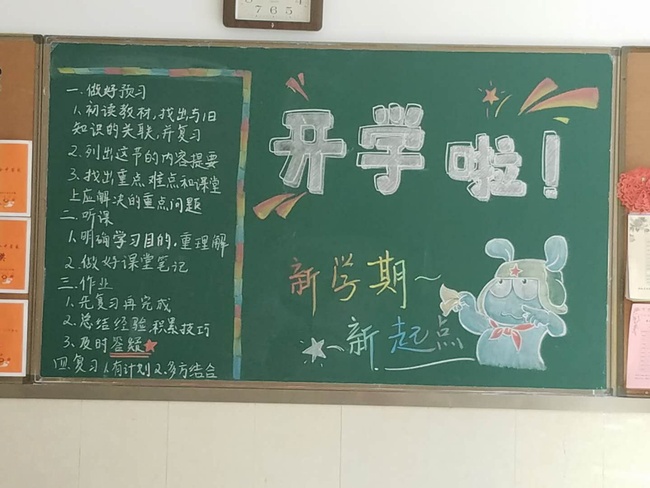 8 4
7 6 5
一.做好预习
1.初读教材,找出与旧
知识的关联,并复习
2.列出这节的内容提要
3.找出重点难点和课堂
上应解决的重点问题
二.听课
1.明确学习目的.重理解
2.做好课堂笔记
三.作业
1.先复习再完成
2.总结经验积累技巧
3.及时答疑
四.复习 1.有计划 2.多方结合
开学啦!
新学期~
~新起点